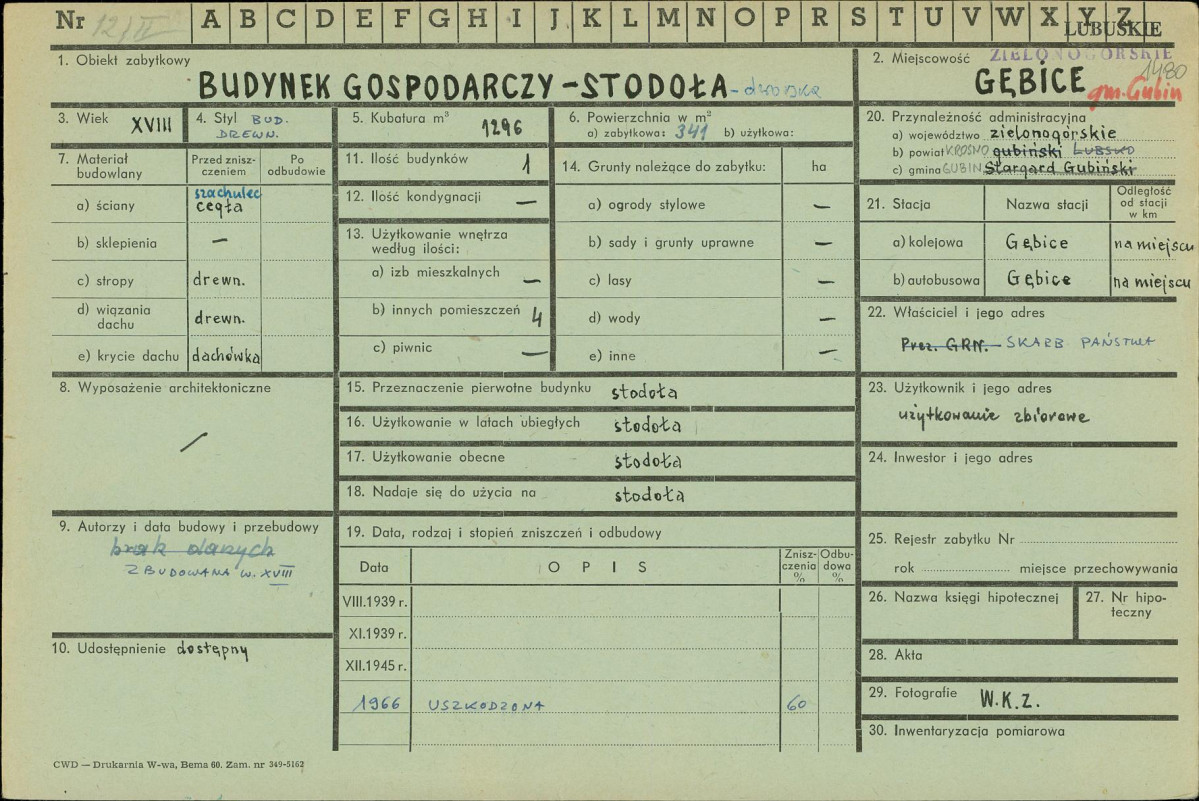 Nr 12/II A B C D E F G H I J K L M N O P R S T U V W X Y Z
LUBUSKIE
ZIELONOGÓRSKIE
1480
1. Obiekt zabytkowy
BUDYNEK GOSPODARCZY – STODOŁA – dworska
2. Miejscowość
GĘBICE gm. Gubin
3. Wiek XVIII
4. Styl BUD.
DREWN.
5. Kubatura m³ 1296
6. Powierzchnia w m²
a) zabytkowa: 341 b) użytkowa:
20. Przynależność administracyjna
a) województwo zielonogórskie
b) powiat KROSNO gubiński LUBSKO
c) gmina GUBIN Stargard Gubiński
7. Materiał budowlany
Przed znisz-
czeniem
Po
odbudowie
a) ściany szachulec
cegła
b) sklepienia —
c) stropy drewn.
d) wiązania
dachu drewn.
e) krycie dachu dachówka
11. Ilość budynków 1
12. Ilość kondygnacji —
13. Użytkowanie wnętrza
według ilości:
a) izb mieszkalnych —
b) innych pomieszczeń 4
c) piwnic —
14. Grunty należące do zabytku: ha
a) ogrody stylowe —
b) sady i grunty uprawne —
c) lasy —
d) wody —
e) inne —
21. Stacja Nazwa stacji Odległość
od stacji
w km
a) kolejowa Gębice na miejscu
b) autobusowa Gębice na miejscu
22. Właściciel i jego adres
Prez. GRN. – SKARB PAŃSTWA
8. Wyposażenie architektoniczne
/
15. Przeznaczenie pierwotne budynku stodoła
16. Użytkowanie w latach ubiegłych stodoła
17. Użytkowanie obecne stodoła
18. Nadaje się do użycia na stodoła
23. Użytkownik i jego adres
użytkowanie zbiorowe
24. Inwestor i jego adres
9. Autorzy i data budowy i przebudowy
brak danych
ZBUDOWANA W. XVIII
10. Udostępnienie dostępny
19. Data, rodzaj i stopień zniszczeń i odbudowy
Data OPIS Znisz-
czenia
% Odbu-
dowa
%
VIII.1939 r.
XI.1939 r.
XII.1945 r.
1966 USZKODZONA 60
25. Rejestr zabytku Nr
rok miejsce przechowywania
26. Nazwa księgi hipotecznej
27. Nr hipo-
teczny
28. Akta
29. Fotografie W.K.Z.
30. Inwentaryzacja pomiarowa
CWD — Drukarnia W-wa, Bema 60. Zam. nr 349-5162